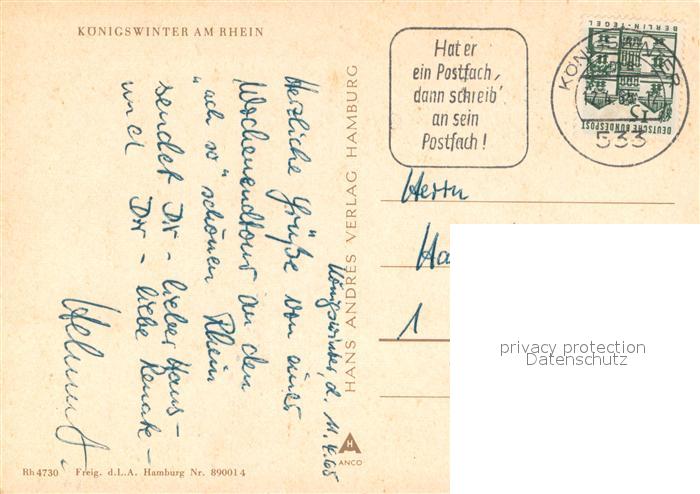 KÖNIGSWINTER AM RHEIN
Königswinter, d. 11.4.65
Herzliche Grüße von einer
Wochenendtour an den
"ach so" schönen Rhein
sendet Dir - lieber Hans -
und Dir - liebe Renate -
Helmut.
HANS ANDRES VERLAG HAMBURG
H
A
ANCO
Rh 4730 Freig. d.L.A. Hamburg Nr. 890014
Hat er
ein Postfach,
dann schreib'
an sein
Postfach!
533
BERLIN-TEGEL
15
DEUTSCHE BUNDESPOST
Herrn
Ha
1
privacy protection
Datenschutz